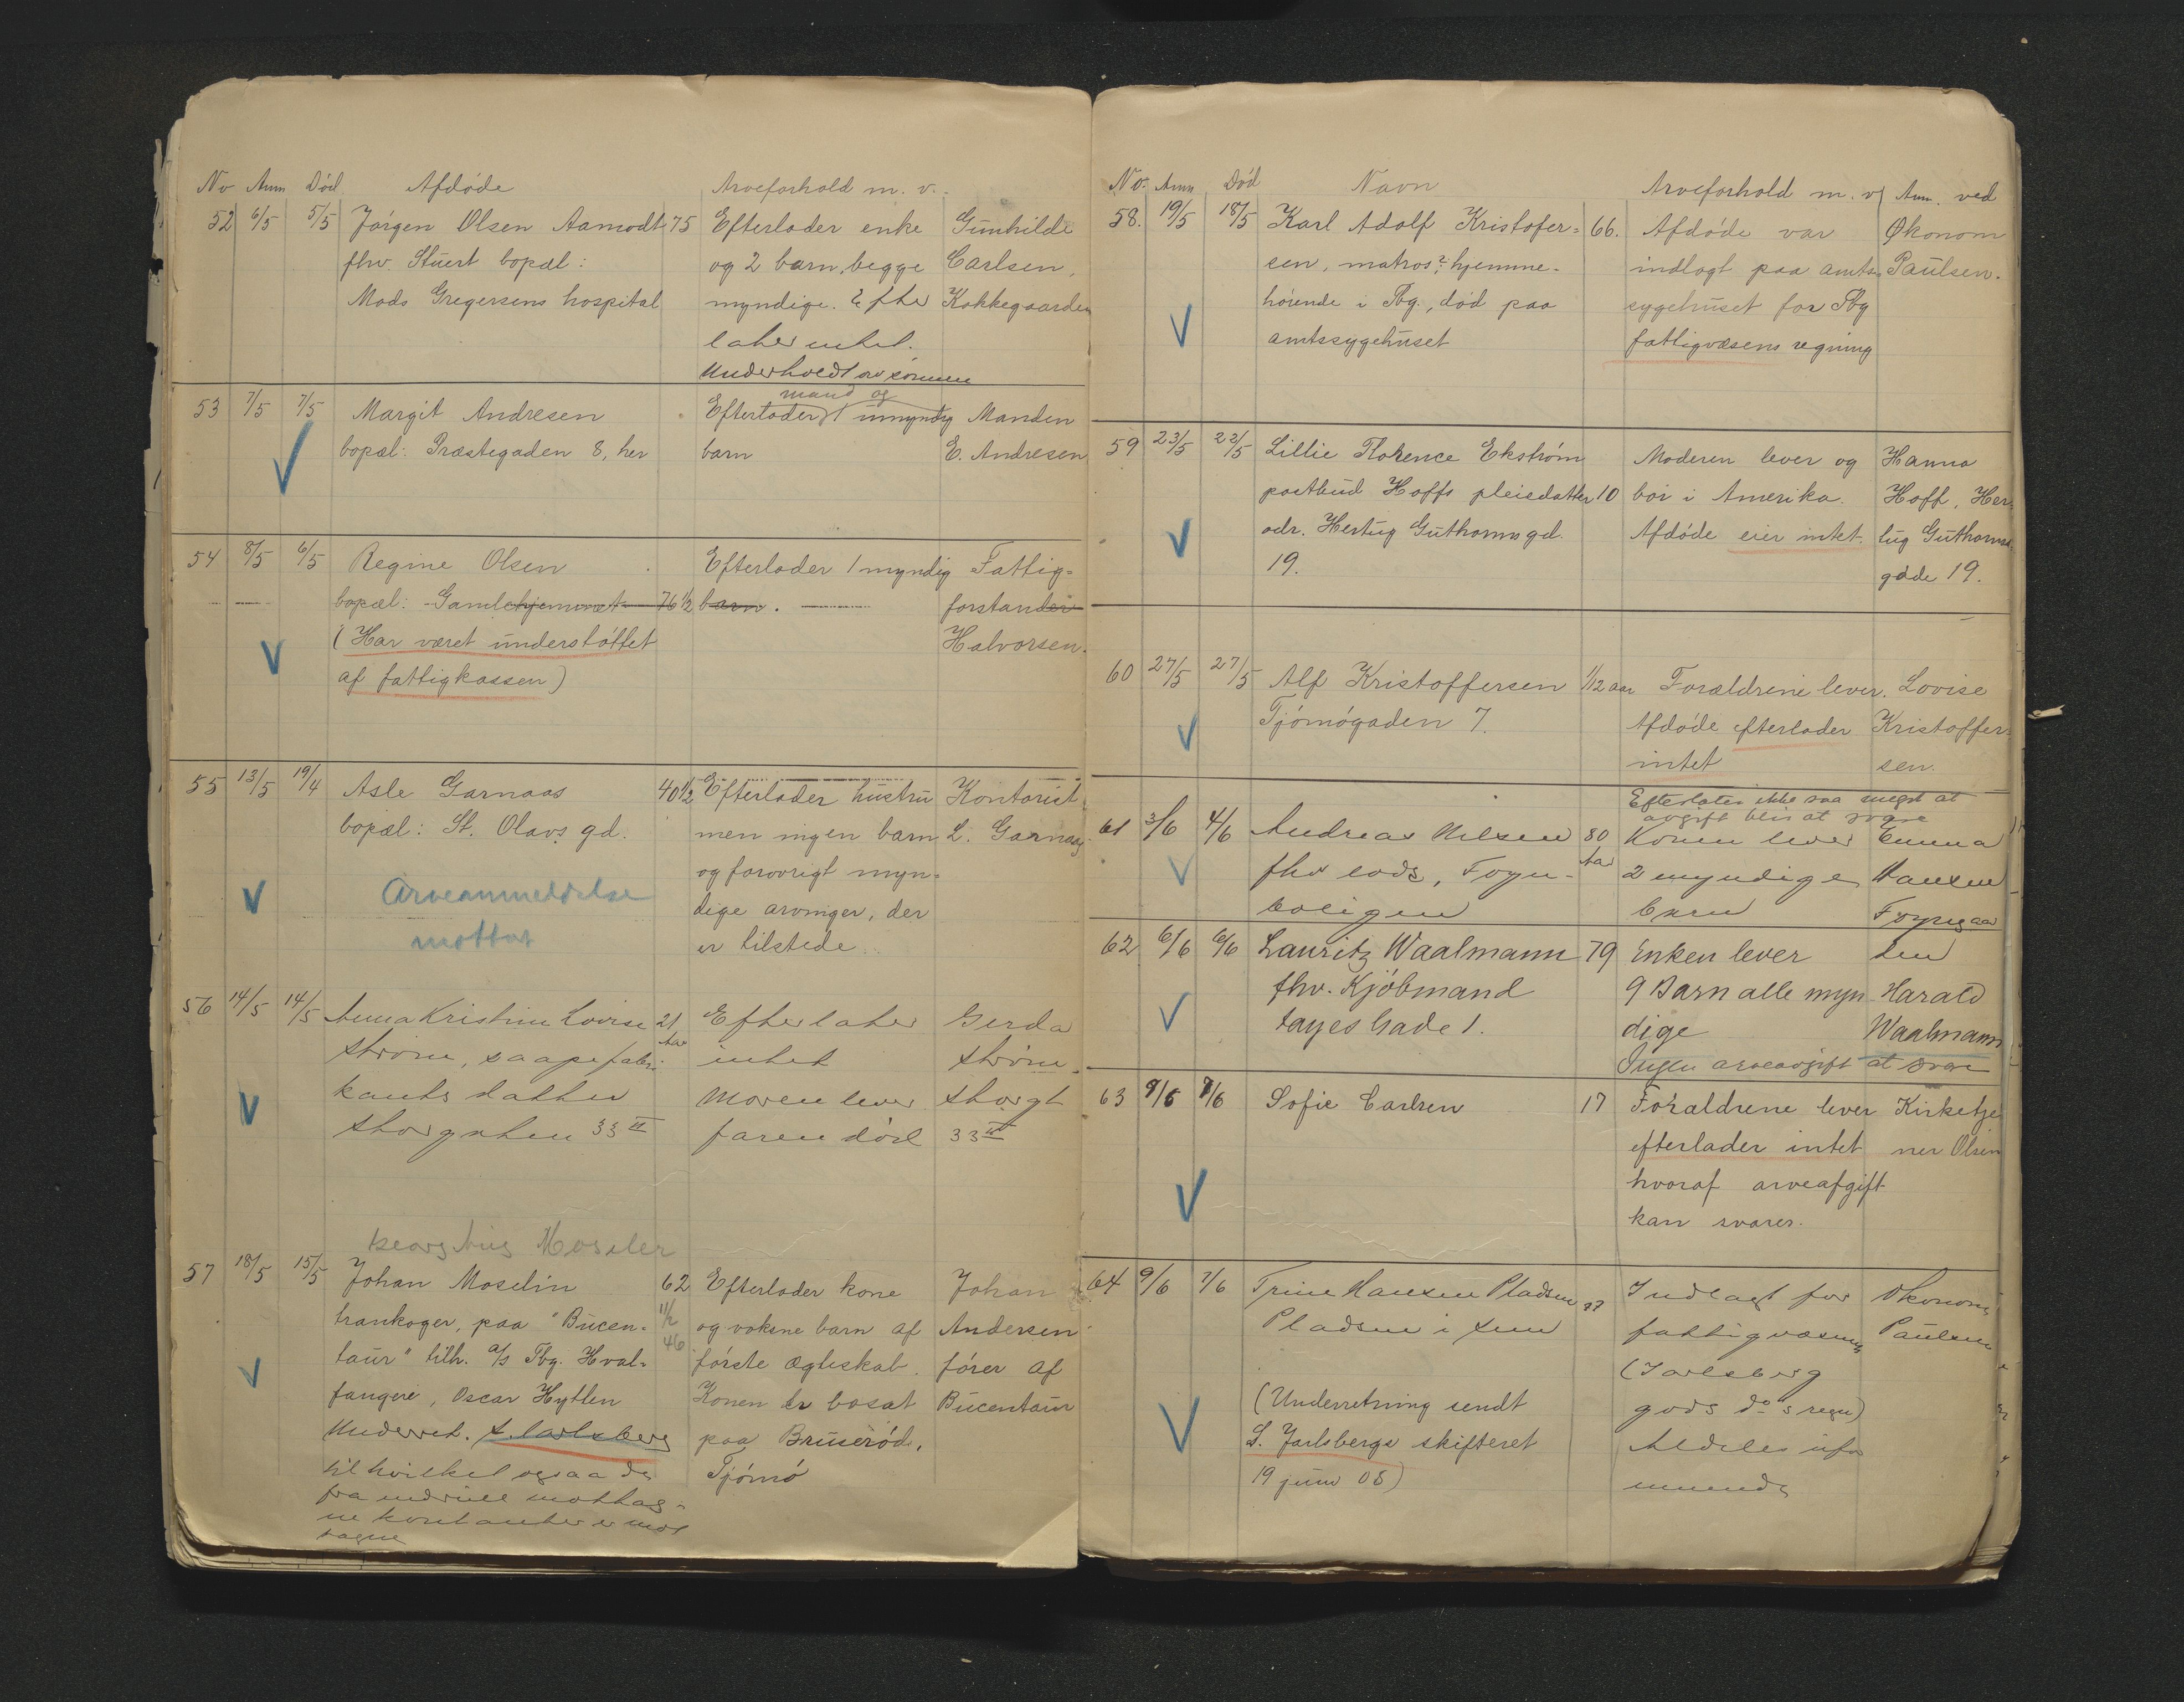 No Anm Död Afdöde Arveforhold m. v.
52 6/5 5/5 Jörgen Olsen Aamodt 75 Efterlader enke Gunhilde
fhv. Stuert bopæl: og 2 barn, begge Carlsen,
Mads Gregersens hospital myndige. Efter Kokkegaarden
later intet.
Underholdt av sönnen
mand og
53 7/5 7/5 Margit Andresen Efterlader 1 umyndig Manden
bopæl: Præstegaden 8, her barn E. Andresen
54 8/5 6/5 Regine Olsen Efterlader 1 myndig Fattig=
bopæl: Gamlehjemmet 76 1/2 barn. forstander
(Har været understöttet Halvorsen.
af fattigkassen)
55 13/5 19/4 Asle Garnaas 40 1/2 Efterlader hustru Kontorist
bopæl: St. Olavs gd. men ingen barn L. Garnaas
og forovrigt myn=
Arveanmeldelse dige arvinger, der
mottat er tilstede.
56 14/5 14/5 Anna Kristine Lovise 21 Efterlater Gerda
Ström, saapefabri- Aar intet Ström
kants datter Moren lever Storgt
Storgaten 33 III faren död 33 III
Georg Aug Moseler
57 18/5 15/5 Johan Moselin 62 Efterlader kone Johan
trankoger, paa "Bucen= 11/2 og voksne barn af Andersen
taur" tilh. a/s Tbg. Hval= 46 förste ægteskab. förer af
fangere, Oscar Hytten Konen er bosat Bucentaur
Underret. S. Jarlsberg paa Bruseröd,
til hvilket ogsaa de Tjömö
fra mottag-
ne kontanter er
No. Anm Död Navn Arveforhold m. v. Anm. ved
58. 19/5 18/5 Karl Adolf Kristofer= 66. Afdöde var Økonom
sen, matros?, hjemme- indlagt paa amts- Paulsen.
hörende i Tbg., död paa sygehuset for Tbg
amtssygehuset fattigvæsens regning
59 23/5 22/5 Lillie Florence Ekström Moderen lever og Hanna
postbud Hoffs pleiedatter 10 bor i Amerika. Hoff, Her-
adr. Hertug Guthorms gd. Afdöde eier intet. tug Guthorms
19. gade 19.
60 27/5 27/5 Alf Kristoffersen 1/12 aar Forældrene lever. Lovise
Tjömögaden 7. Afdöde efterlader Kristoffer-
intet sen.
Efterlater ikke saa meget at
avgift blir at svare
61 3/6 4/6 Andreas Nilsen 80 Konen lever Emma
fhv lods, Foyn- Aar 2 myndige Hansen
boligen barn Foyngaar
62 6/6 6/6 Lauritz Waalmann 79 Enken lever den
fhv. Kjöbmand 9 Barn alle myn Harald
Fayes Gade 1. dige Waalmann
Ingen arveavgift at svare
63 9/6 7/6 Sofie Carlsen 17 Forældrene lever Kirketje
efterlader intet ner Olsen
hvoraf arveafgift
kan svares.
64 9/6 7/6 Trine Hansen Pladsen 77 Indlagt for Økonom
Pladsen i Sem fattigvæsenets Paulsen
(Jarlsberg
(Underretning sendt gods do's regn)
S. Jarlsbergs skifteret Aldeles ufor
19 juni 08) muende